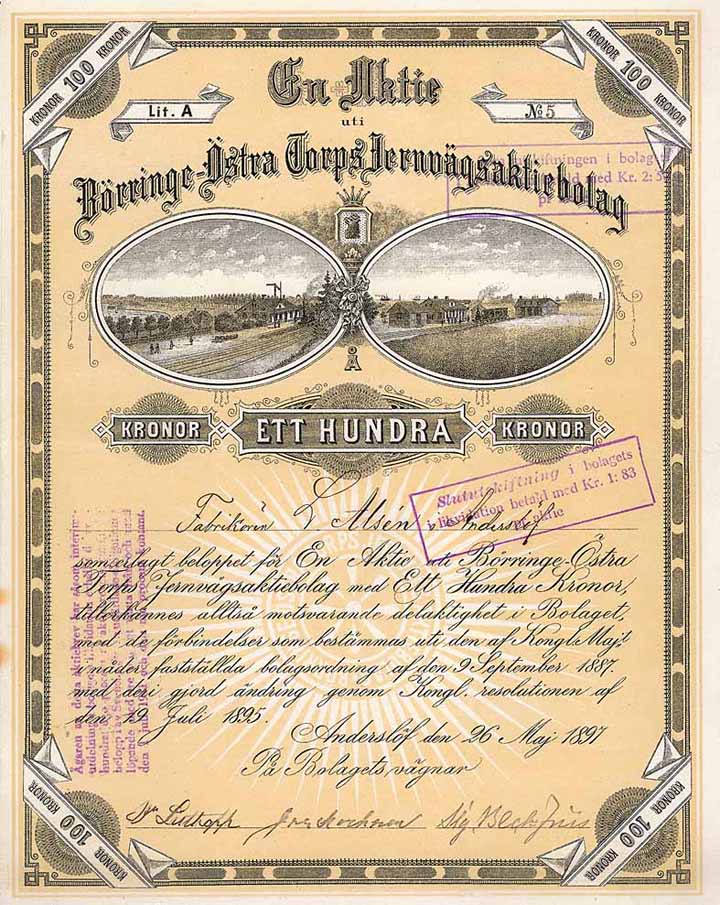 100 KRONOR
KRONOR 100
En Aktie
Lit. A
№ 5
uti
Börringe-Östra Torps Jernvägsaktiebolag
skiftningen i bolag
ed Kr. 2:5
pr
Å
KRONOR ETT HUNDRA KRONOR
Slututskiftning i bolagets
likvidation betald med Kr. 1:83
aktie
Fabrikören L Alsén i Anderslöf
som erlagt beloppet för En Aktie uti Börringe-Östra
Torps Jernvägsaktiebolag med Ett Hundra Kronor,
tillerkännes alltså motsvarande delaktighet i Bolaget,
med de förbindelser som bestämmas uti den af Kongl. Maj:t
i nåder fastställda bolagsordning af den 9 September 1887.
med deri gjord ändring genom Kongl. resolutionen af
den 19 Juli 1895.
Anderslöf den 26 Maj 1897
På Bolagets vägnar
Ägaren av detta aktiebrev har
100 KRONOR
KRONOR 100